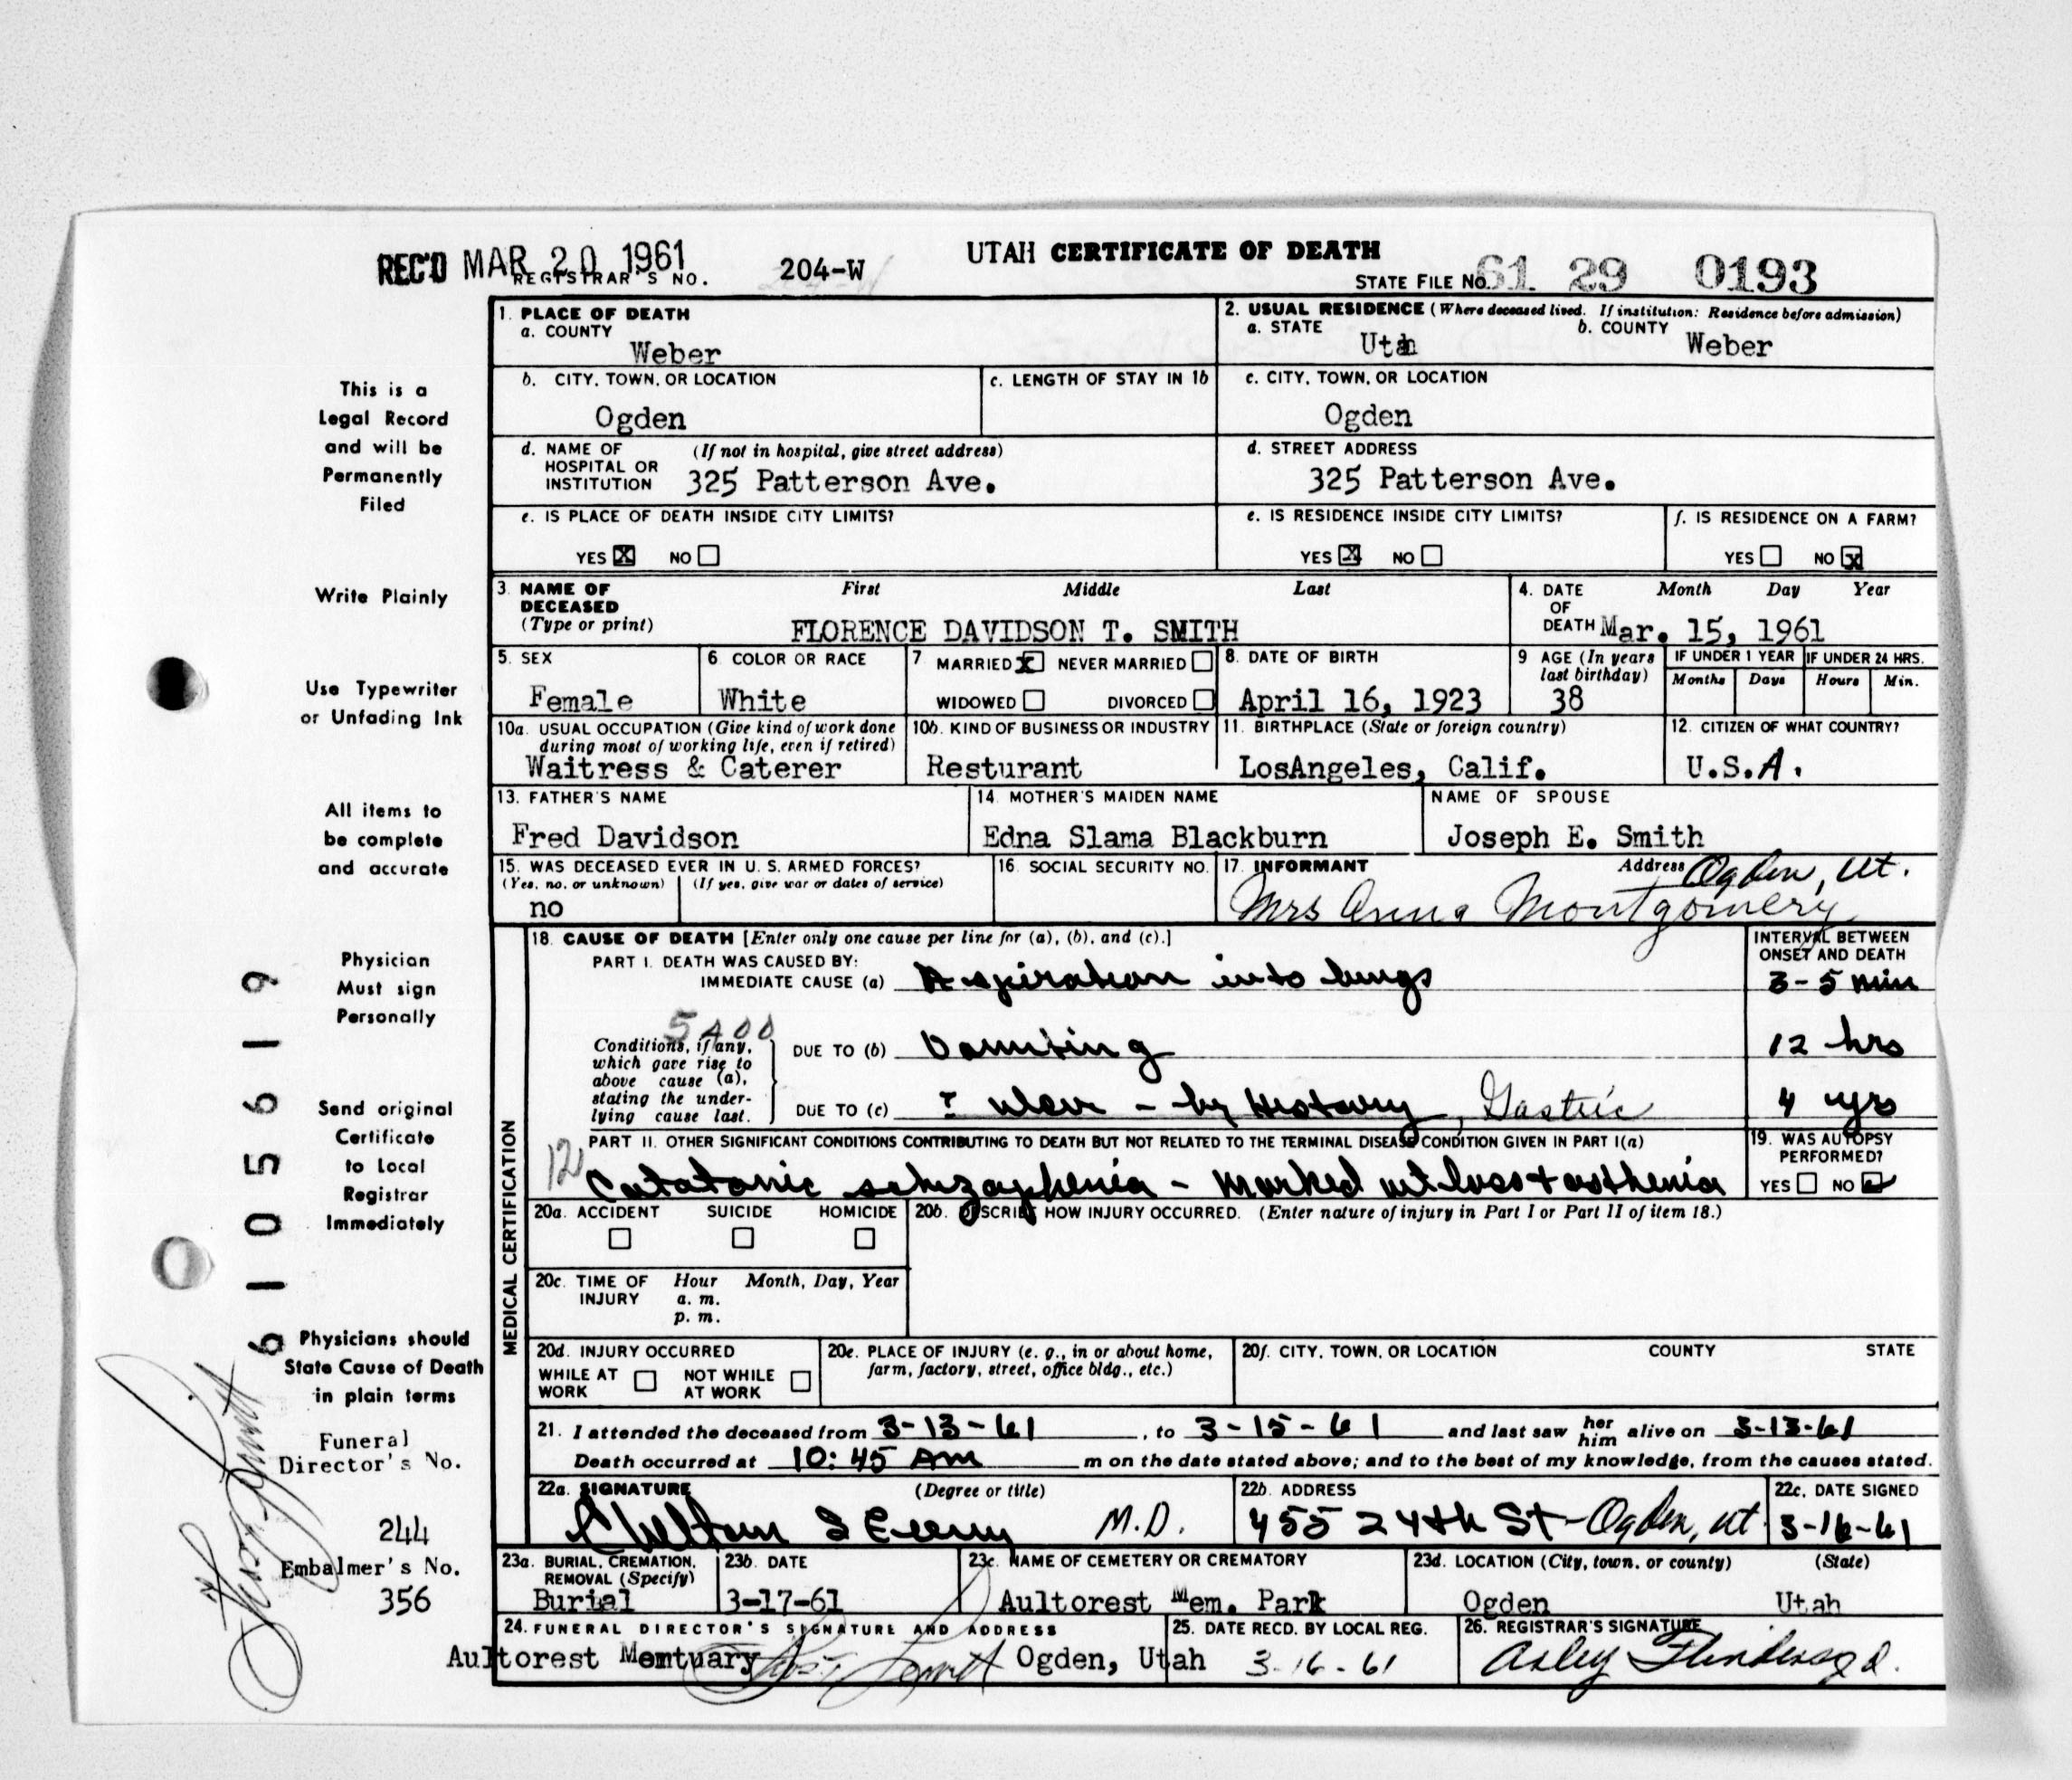 REC'D MAR 20 1961
REGISTRAR'S NO. 204-W
UTAH CERTIFICATE OF DEATH
STATE FILE NO. 61 29 0193
This is a
Legal Record
and will be
Permanently
Filed
Write Plainly
Use Typewriter
or Unfading Ink
All items to
be complete
and accurate
Physician
Must sign
Personally
Send original
Certificate
to Local
Registrar
Immediately
Physicians should
State Cause of Death
in plain terms
Funeral
Director's No.
244
Embalmer's No.
356
61105619
1. PLACE OF DEATH
a. COUNTY
Weber
2. USUAL RESIDENCE (Where deceased lived. If institution: Residence before admission)
a. STATE
Utah
b. COUNTY
Weber
b. CITY, TOWN, OR LOCATION
Ogden
c. LENGTH OF STAY IN 1b
c. CITY, TOWN, OR LOCATION
Ogden
d. NAME OF HOSPITAL OR INSTITUTION (If not in hospital, give street address)
325 Patterson Ave.
d. STREET ADDRESS
325 Patterson Ave.
e. IS PLACE OF DEATH INSIDE CITY LIMITS?
YES X NO
e. IS RESIDENCE INSIDE CITY LIMITS?
YES X NO
f. IS RESIDENCE ON A FARM?
YES NO X
3. NAME OF DECEASED (Type or print)
First Middle Last
FLORENCE DAVIDSON T. SMITH
4. DATE OF DEATH Month Day Year
Mar. 15, 1961
5. SEX
Female
6. COLOR OR RACE
White
7. MARRIED X NEVER MARRIED
WIDOWED DIVORCED
8. DATE OF BIRTH
April 16, 1923
9. AGE (In years last birthday)
38
IF UNDER 1 YEAR
Months Days
IF UNDER 24 HRS.
Hours Min.
10a. USUAL OCCUPATION (Give kind of work done during most of working life, even if retired)
Waitress & Caterer
10b. KIND OF BUSINESS OR INDUSTRY
Resturant
11. BIRTHPLACE (State or foreign country)
LosAngeles, Calif.
12. CITIZEN OF WHAT COUNTRY?
U.S.A.
13. FATHER'S NAME
Fred Davidson
14. MOTHER'S MAIDEN NAME
Edna Slama Blackburn
NAME OF SPOUSE
Joseph E. Smith
15. WAS DECEASED EVER IN U.S. ARMED FORCES?
(Yes, no, or unknown) (If yes, give war or dates of service)
no
16. SOCIAL SECURITY NO.
17. INFORMANT Address
Ogden, Ut.
Mrs Montgomery
MEDICAL CERTIFICATION
18. CAUSE OF DEATH [Enter only one cause per line for (a), (b), and (c).]
INTERVAL BETWEEN ONSET AND DEATH
PART I. DEATH WAS CAUSED BY:
IMMEDIATE CAUSE (a) Aspiration into lungs 3-5 min
Conditions, if any, which gave rise to above cause (a), stating the underlying cause last.
DUE TO (b) Vomiting 12 hrs
DUE TO (c) ? Ulcer - by History, Gastric 4 yrs
PART II. OTHER SIGNIFICANT CONDITIONS CONTRIBUTING TO DEATH BUT NOT RELATED TO THE TERMINAL DISEASE CONDITION GIVEN IN PART I(a)
Catatonic schizophenia - Marked wt loss + asthenia
19. WAS AUTOPSY PERFORMED?
YES NO
20a. ACCIDENT SUICIDE HOMICIDE
20b. DESCRIBE HOW INJURY OCCURRED. (Enter nature of injury in Part I or Part II of item 18.)
20c. TIME OF INJURY Hour Month, Day, Year
a. m.
p. m.
20d. INJURY OCCURRED
WHILE AT WORK NOT WHILE AT WORK
20e. PLACE OF INJURY (e. g., in or about home, farm, factory, street, office bldg., etc.)
20f. CITY, TOWN, OR LOCATION COUNTY STATE
21. I attended the deceased from 3-13-61, to 3-15-61 and last saw her him alive on 3-13-61
Death occurred at 10:45 AM m on the date stated above; and to the best of my knowledge, from the causes stated.
22a. SIGNATURE (Degree or title)
M.D.
22b. ADDRESS
455 24th St - Ogden, Ut.
22c. DATE SIGNED
3-16-61
23a. BURIAL, CREMATION, REMOVAL (Specify)
Burial
23b. DATE
3-17-61
23c. NAME OF CEMETERY OR CREMATORY
Aultorest Mem. Park
23d. LOCATION (City, town, or county) (State)
Ogden Utah
24. FUNERAL DIRECTOR'S SIGNATURE AND ADDRESS
Aultorest Ogden, Utah
25. DATE RECD. BY LOCAL REG.
3-16-61
26. REGISTRAR'S SIGNATURE